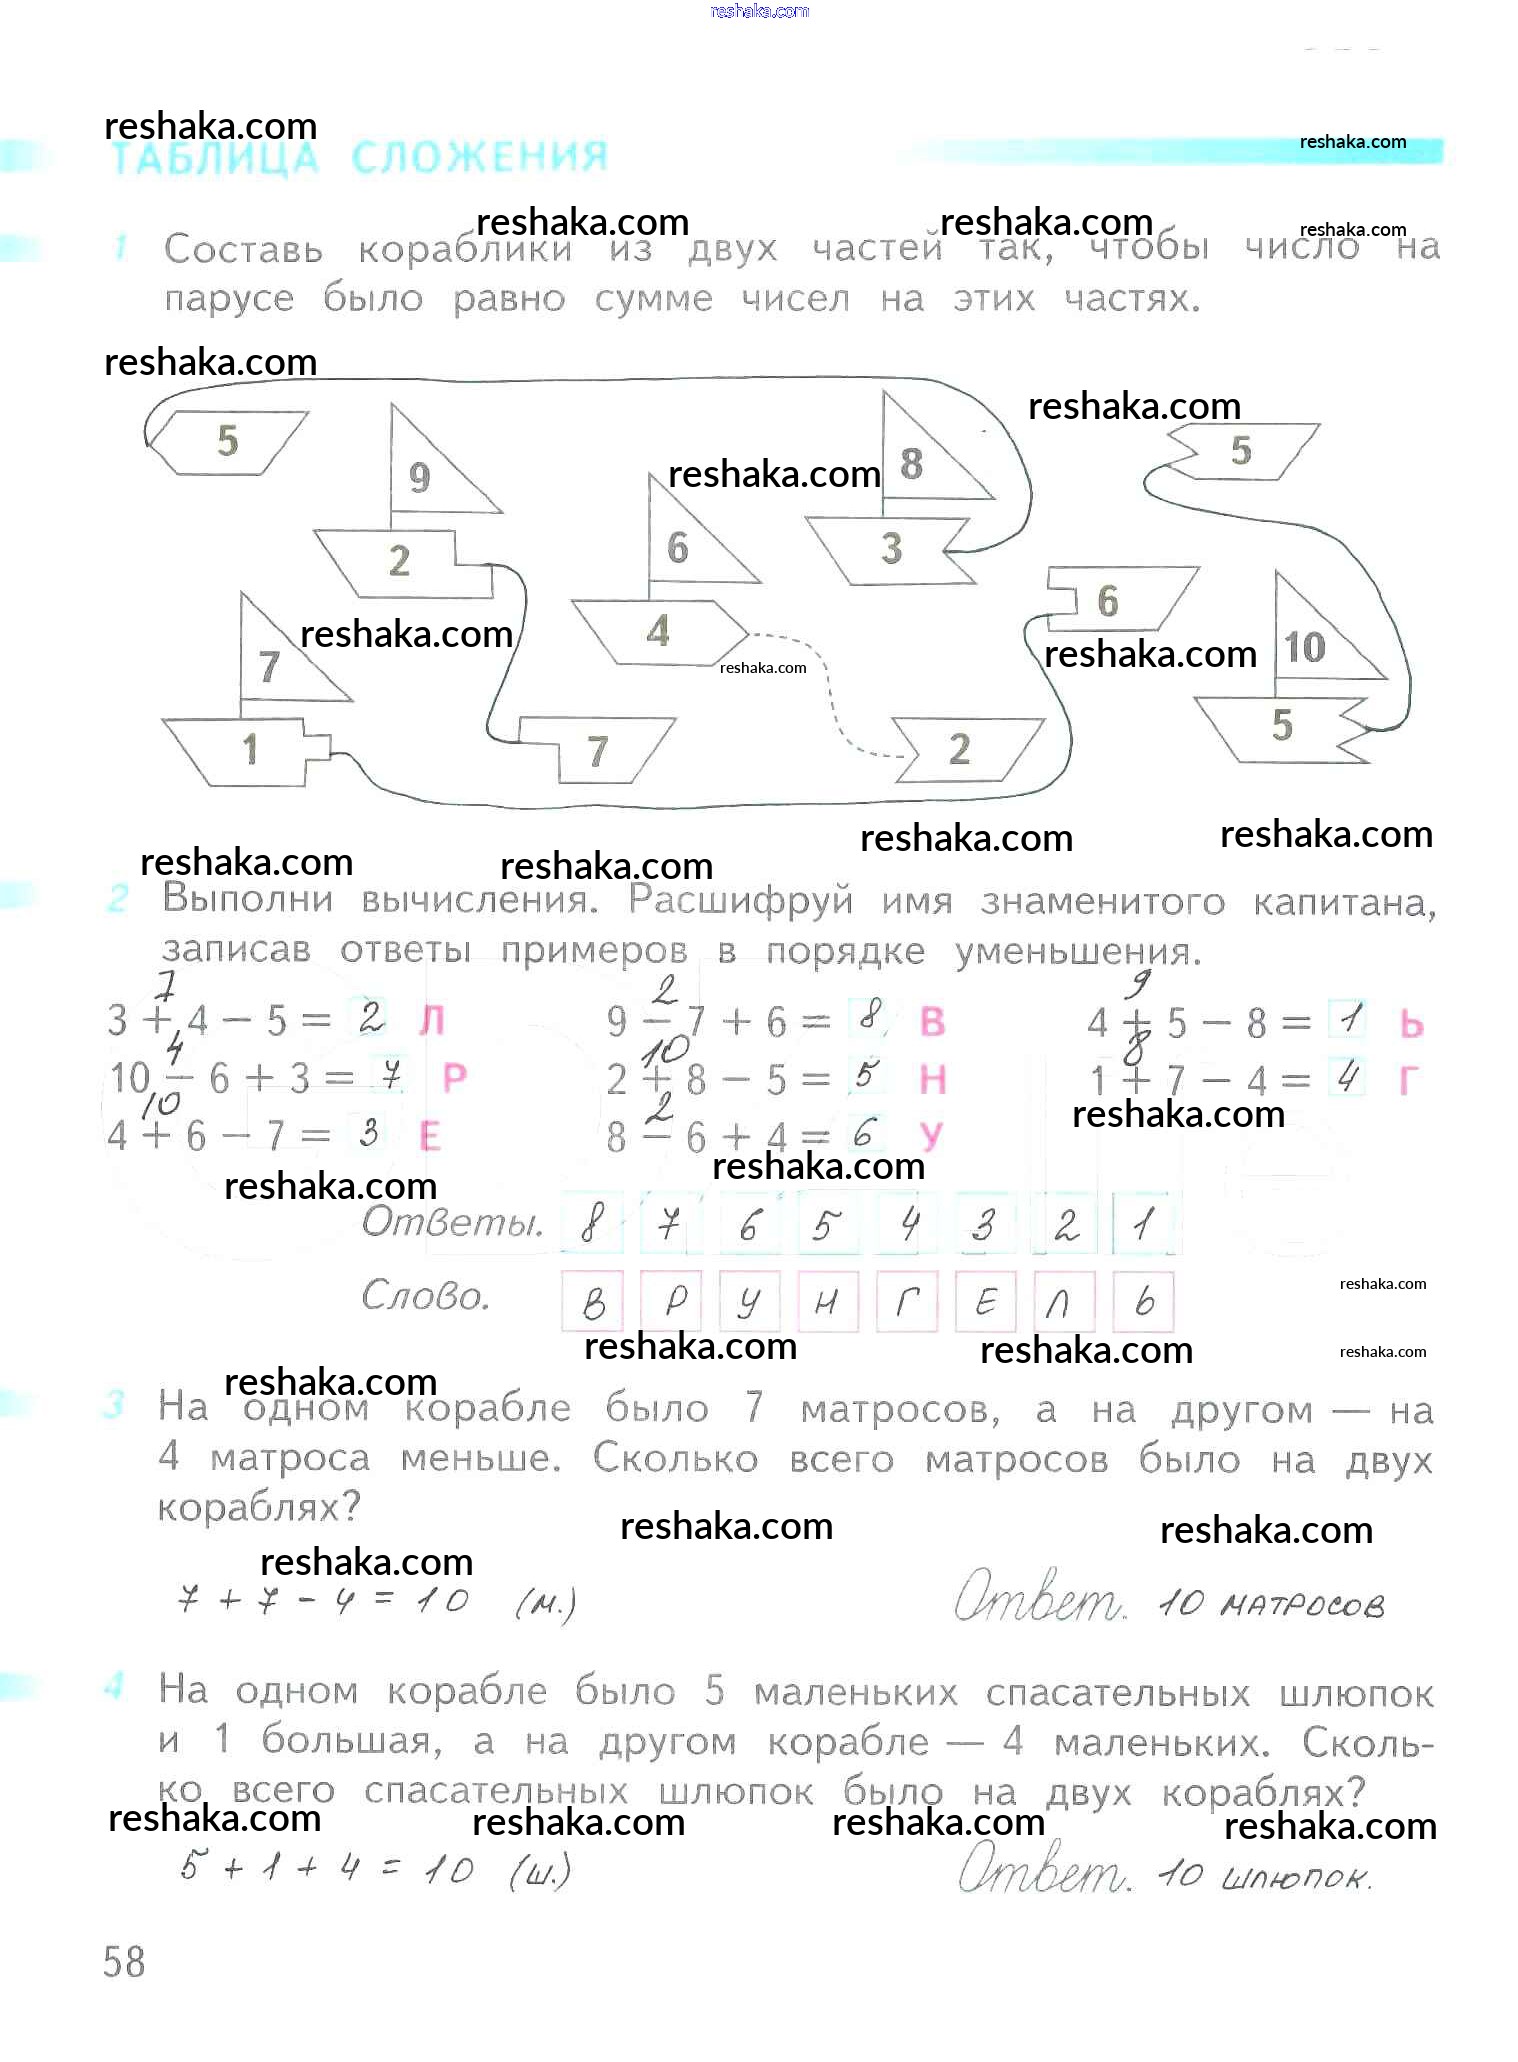 reshaka.com
reshaka.com
ТАБЛИЦА СЛОЖЕНИЯ
reshaka.com
reshaka.com
reshaka.com
reshaka.com
1 Составь кораблики из двух частей так, чтобы число на
парусе было равно сумме чисел на этих частях.
reshaka.com
reshaka.com
5
9
8
5
reshaka.com
2
6
3
6
reshaka.com
7
4
10
reshaka.com
reshaka.com
1
7
2
5
reshaka.com
reshaka.com
reshaka.com
reshaka.com
2 Выполни вычисления. Расшифруй имя знаменитого капитана,
записав ответы примеров в порядке уменьшения.
7 2 9
3 + 4 − 5 = 2 Л 9 − 7 + 6 = 8 В 4 + 5 − 8 = 1 Ь
4 10 8
10 − 6 + 3 = 7 Р 2 + 8 − 5 = 5 Н 1 + 7 − 4 = 4 Г
10 2 reshaka.com
4 + 6 − 7 = 3 Е 8 − 6 + 4 = 6 У
reshaka.com
reshaka.com
Ответы. 8 7 6 5 4 3 2 1
Слово. В Р У Н Г Е Л Ь
reshaka.com
reshaka.com
reshaka.com
reshaka.com
reshaka.com
3 На одном корабле было 7 матросов, а на другом — на
4 матроса меньше. Сколько всего матросов было на двух
кораблях?
reshaka.com
reshaka.com
reshaka.com
7 + 7 − 4 = 10 (м.) Ответ. 10 матросов
4 На одном корабле было 5 маленьких спасательных шлюпок
и 1 большая, а на другом корабле — 4 маленьких. Сколь-
ко всего спасательных шлюпок было на двух кораблях?
reshaka.com
reshaka.com
reshaka.com
reshaka.com
5 + 1 + 4 = 10 (ш.) Ответ. 10 шлюпок.
58